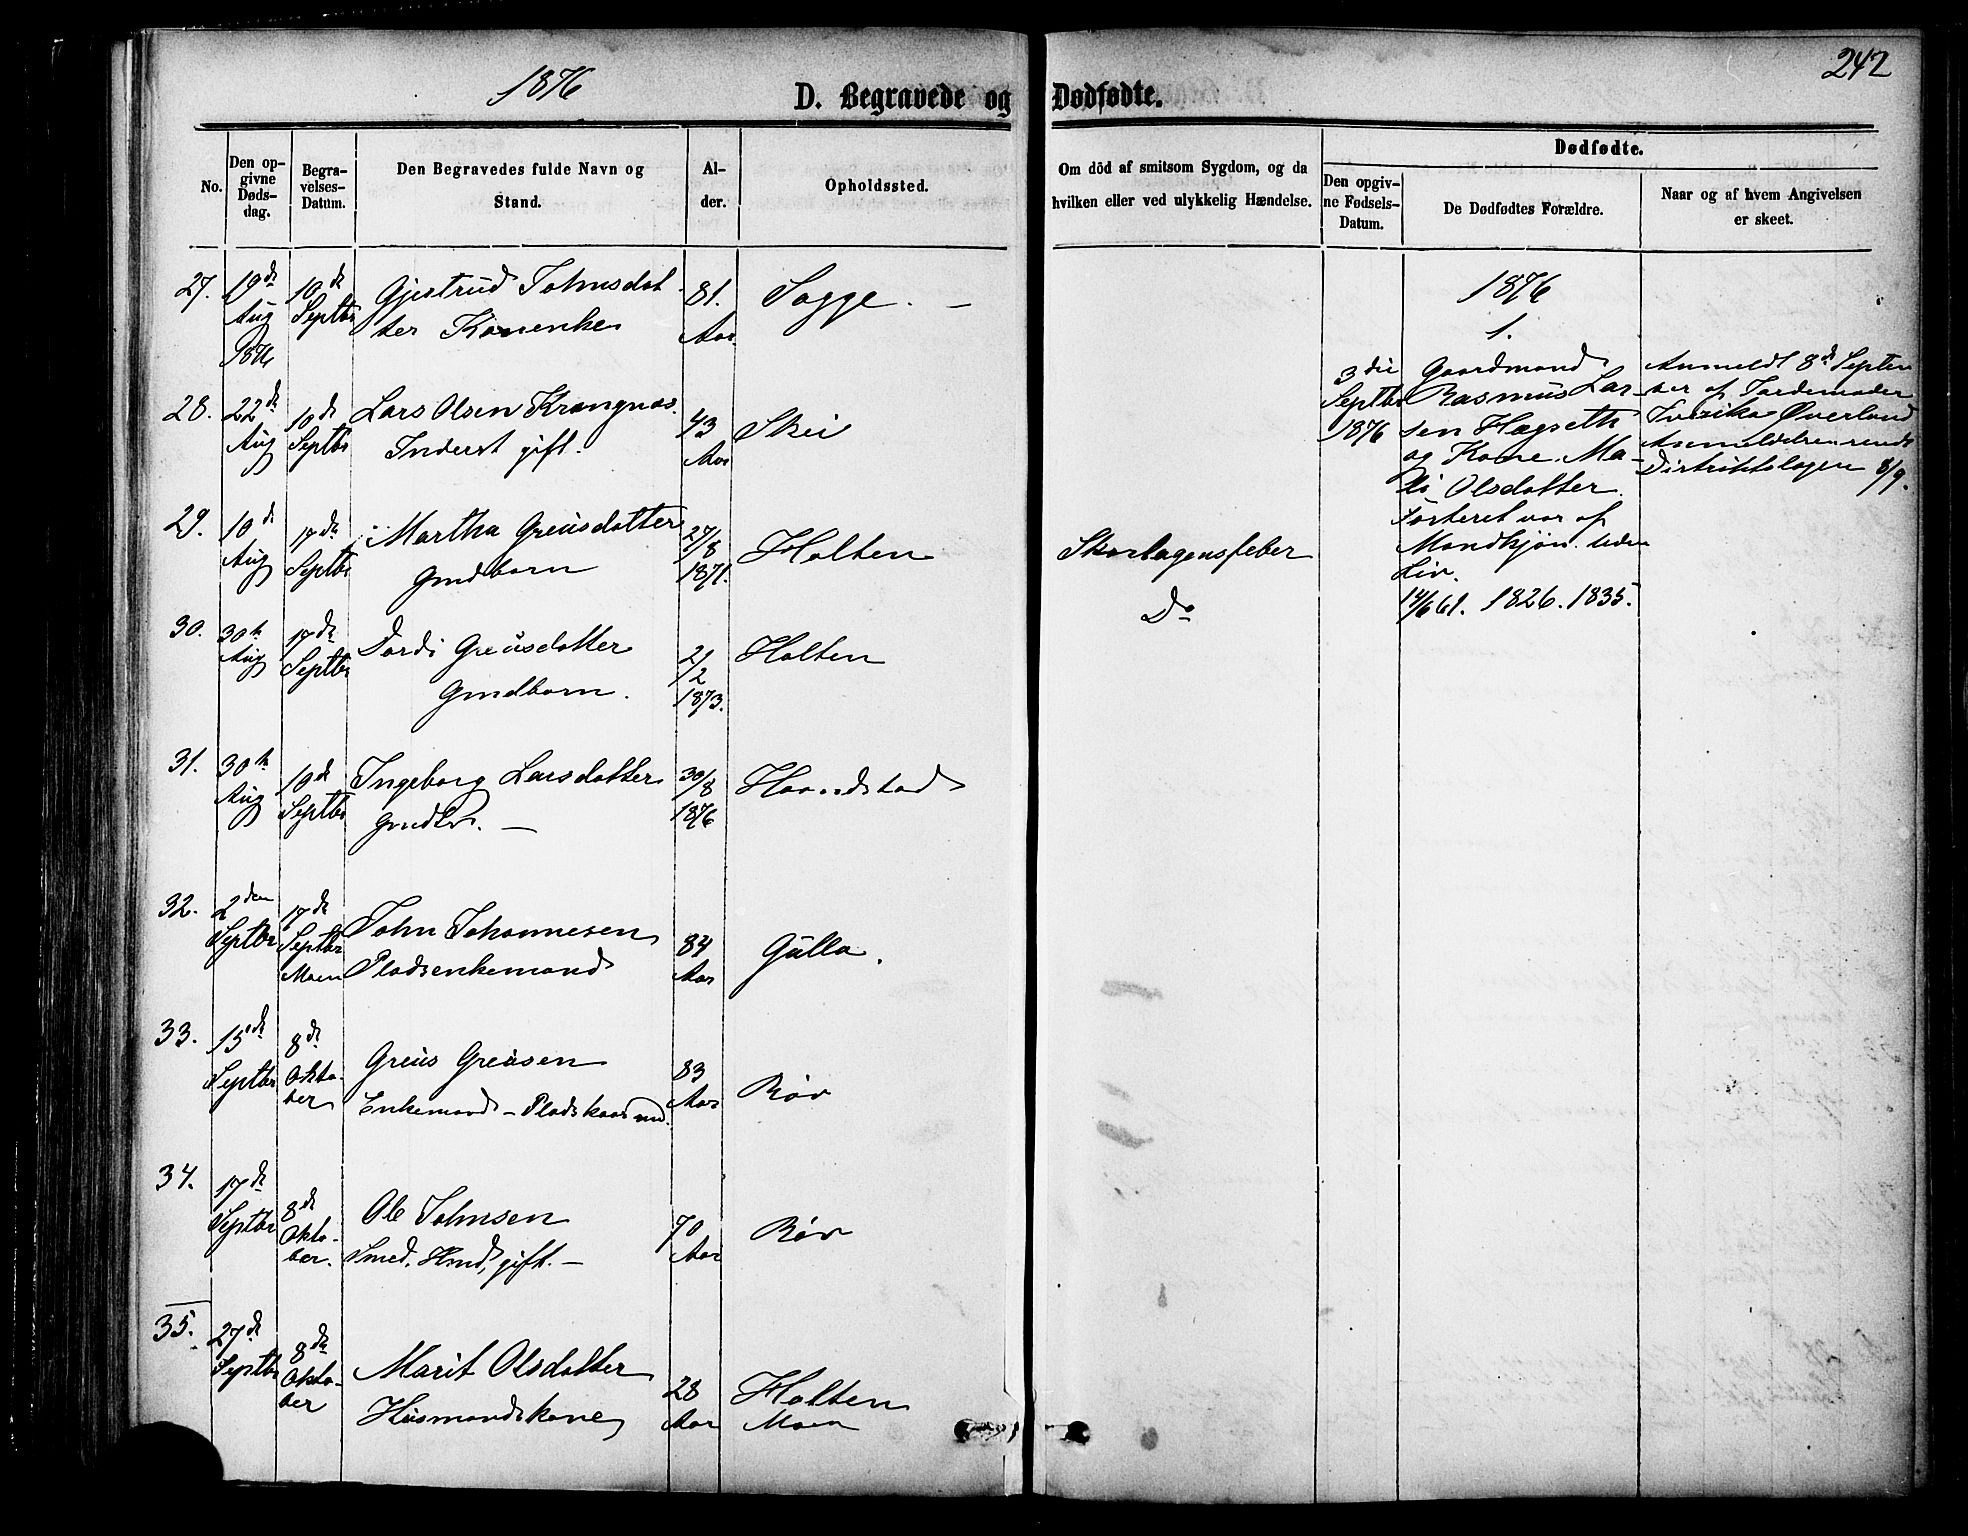 1876
242
D. Begravede og Dødfødte.
No.
Den opgivne Dødsdag.
Begravelses-Datum.
Den Begravedes fulde Navn og Stand.
Alder.
Opholdssted.
Om död af smitsom Sygdom, og da hvilken eller ved ulykkelig Hændelse.
Dødfødte.
Den opgivne Fødsels-Datum.
De Dødfødtes Forældre.
Naar og af hvem Angivelsen er skeet.
27. 19de Aug 1876 10de Septbr Gjertrud Johnsdotter Konenke 81. Aar Sogge. —
28. 22de Aug 10de Septbr Lars Olsen Krangnæs. Inderst gift. 43 Aar Skei
29. 10de Aug 17de Septbr Martha Greüsdotter Gmdbarn 27/8 1871. Holten Skarlagensfeber
30. 30te Aug 17de Septbr Dordi Greüsdotter Gmdbarn. 2/2 1873. Holten Do
31. 30te Aug 10de Septbr Ingeborg Larsdotter Gmdbr. — 30/8 1876 Haandstad
32. 2den Septbr 17de Septbr Moen John Johannesen Pladsenkemand 84 Aar Gülla.
33. 15de Septbr 8de Oktober Greüs Greüsen Enkemand – Pladskaarmd. 83 Aar Røv
34. 17de Septbr 8de Oktober. Ole Johnsen Smed. Hmd, gift. — 70 Aar Røv
35. 27de Septbr 8de Oktober Marit Olsdatter Husmandskone 28 Aar Holten Moen
1876
1.
3die Septbr 1876
Gaardmand
Rasmus Larsen Hægseth
og Kone Ma-
Olsdotter.
Fosteret var af
Mandkjøn. uden
Liv.
14/6 61. 1826. 1835.
Anmeldt 8de September af Jordemoder
Øverland
Anmeldelsen sendt
Distriktslægen 8/9.